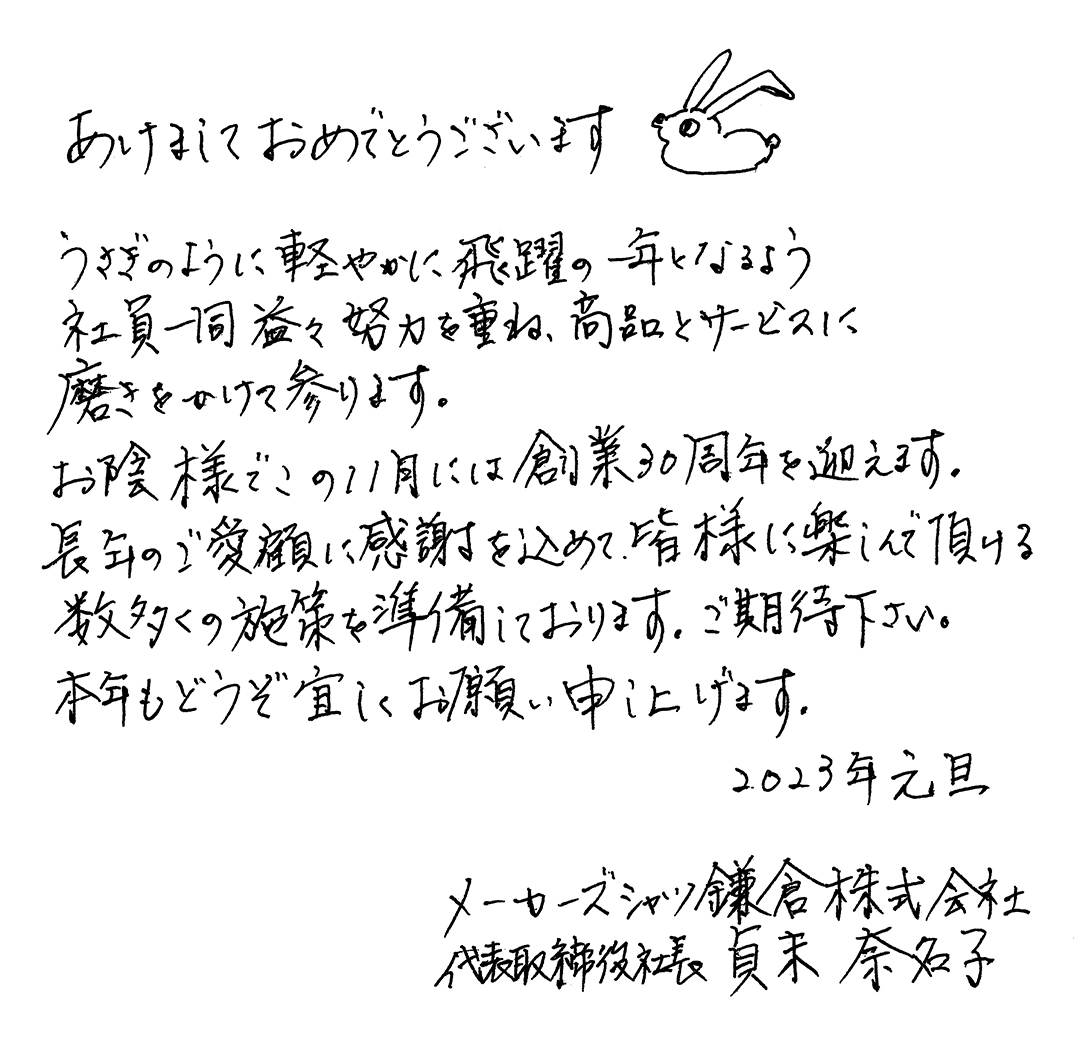 あけましておめでとうございます
うさぎのように軽やかに飛躍の一年となるよう
社員一同益々努力を重ね、商品とサービスに
磨きをかけて参ります。
お陰様でこの11月には創業30周年を迎えます。
長年のご愛顧に感謝を込めて、皆様に楽しんで頂ける
数多くの施策を準備しております。ご期待下さい。
本年もどうぞ宜しくお願い申し上げます。
2023年元旦
メーカーズシャツ鎌倉株式会社
代表取締役社長 貞末 奈名子